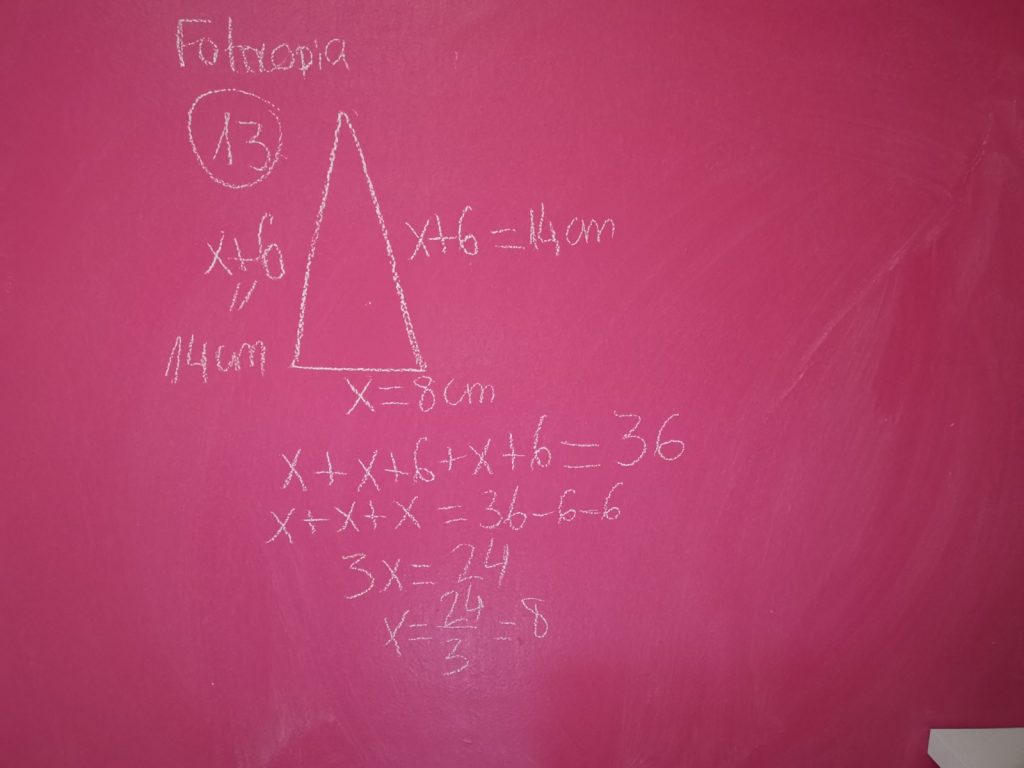 Fotocopia
13
x+6
x+6 = 14 cm
"
14 cm
x = 8 cm
x + x+6 + x+6 = 36
x + x + x = 36 - 6 - 6
3x = 24
x = 24/3 = 8